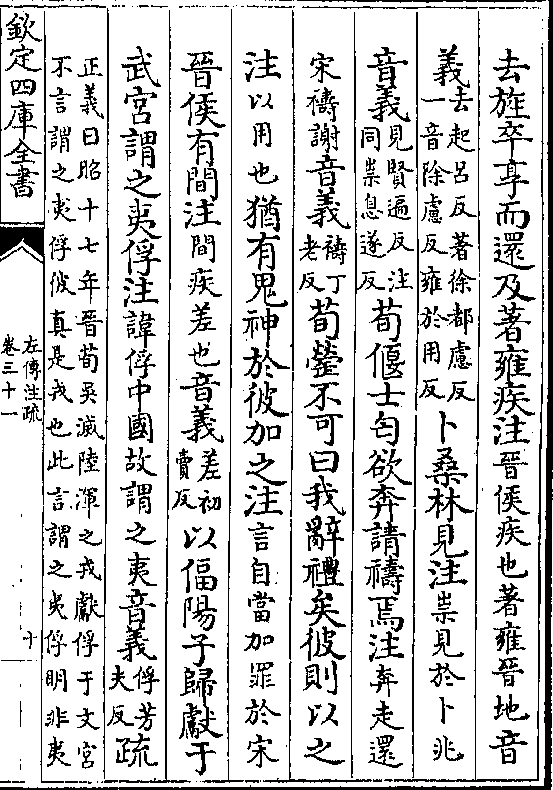 去旌卒享而還及著雍疾注晉侯疾也著雍晉地音
義去起呂反著徐都慮反一音除慮反雍於用反卜桑林見注祟見於卜兆
音義見賢遍反注同祟息遂反荀偃士匄欲奔請禱焉注奔走還
宋禱謝音義禱丁老反荀罃不可曰我辭禮矣彼則以之
注以用也猶有鬼神於彼加之注言自當加罪於宋
晉侯有間注間疾差也音義差初賣反以偪陽子歸獻于
武宮謂之夷俘注諱俘中國故謂之夷音義俘芳夫反疏
正義曰昭十七年晉荀吳滅陸渾之戎獻俘于文宮
不言謂之夷俘彼真是戎也此言謂之夷俘明非夷
欽定四庫全書
左傳注疏
卷三十一
十